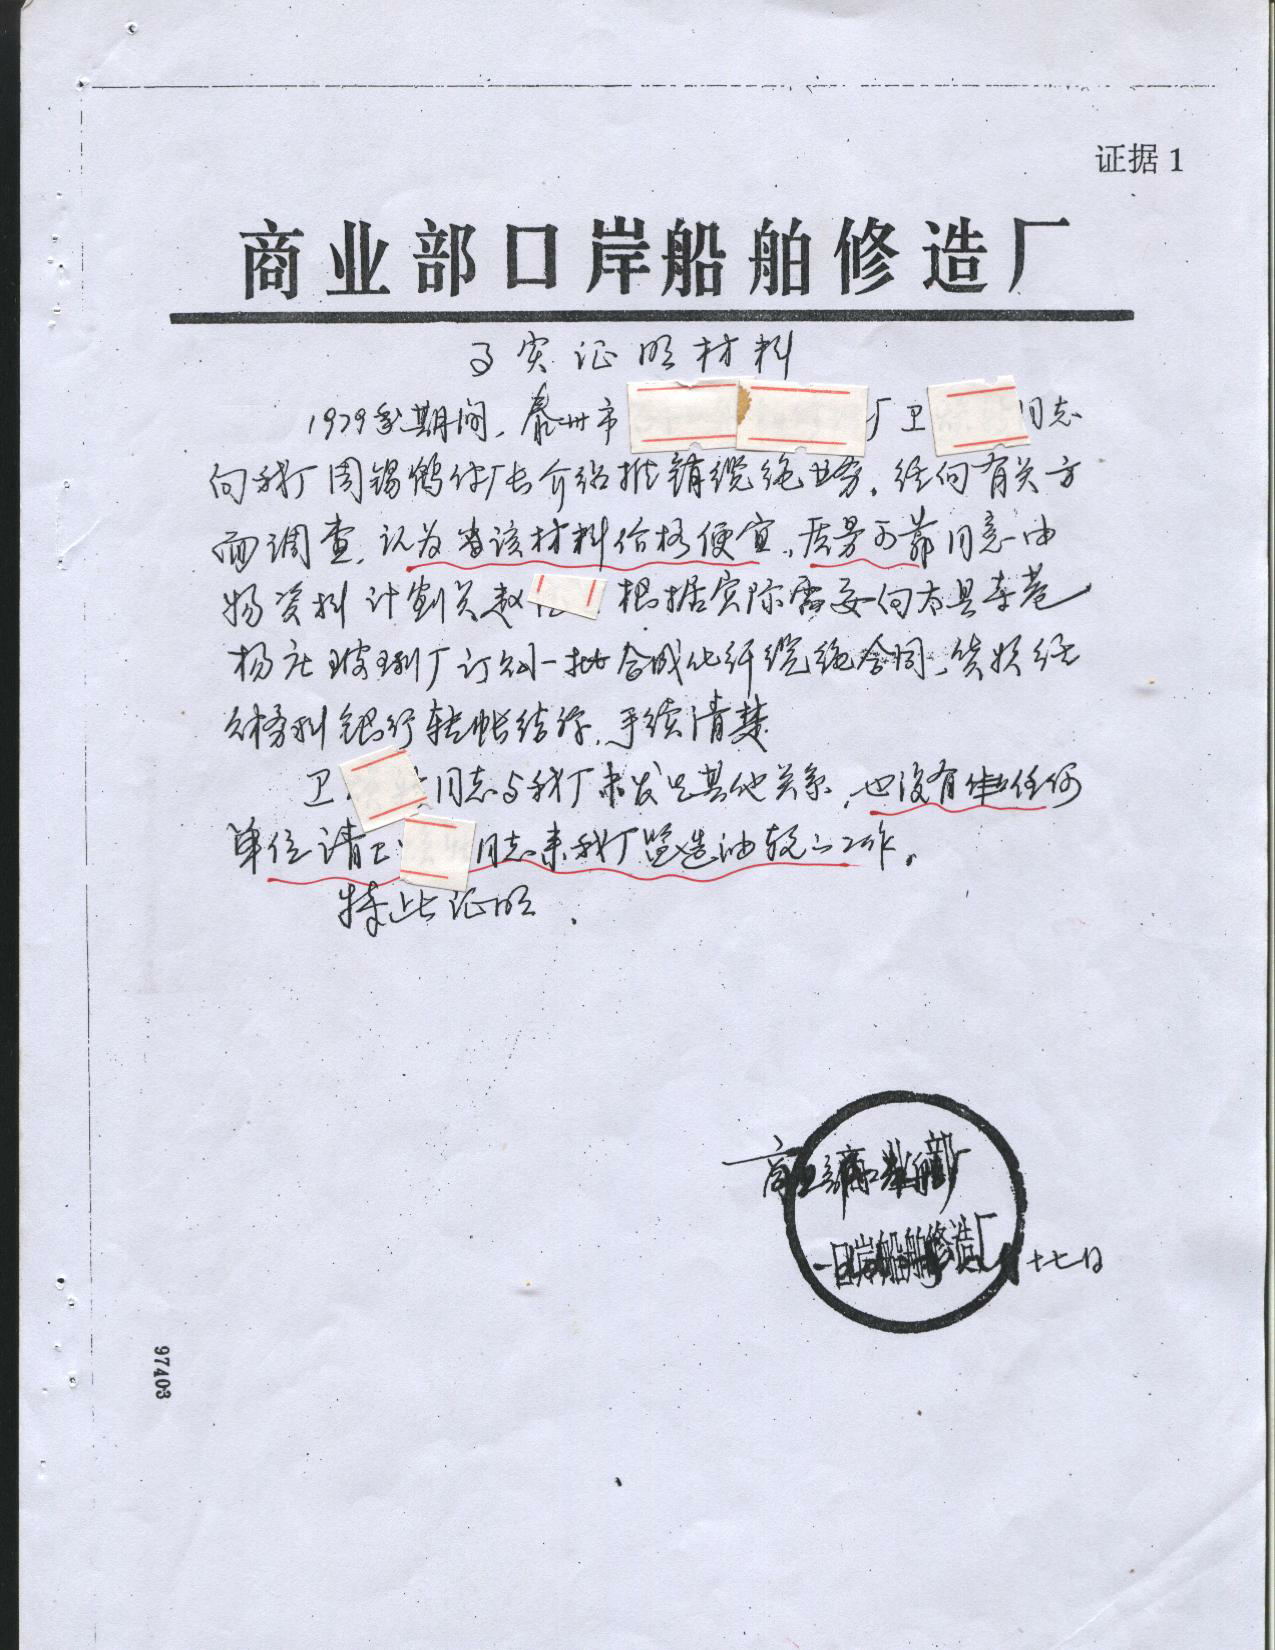 证据 1
商业部口岸船舶修造厂
事实证明材料
1979年期间，泰州市 厂卫 同志
向我厂周锡鹤付厂长介绍推销缆绳业务，经向有关方
面调查，认为当该材料价格便宜，质量可靠同意由
物资科计划员赵 根据实际需要向本县李巷
杨庄玻璃厂订购一批合成化纤缆绳合同，货款经
财务科银行转帐结算，手续清楚
卫 同志与我厂未发生其他关系，也没有任何
单位请卫 同志来我厂监造油轮工作。
特此证明．
商业部
口岸船舶修造厂
十七日
97403